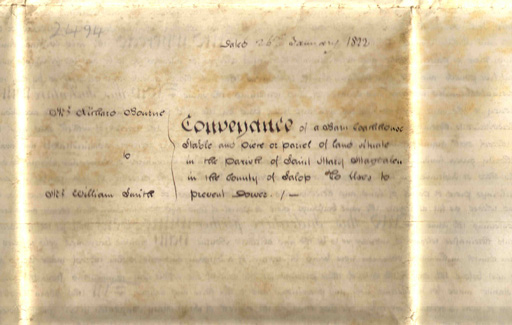 2494
Dated 26th January 1822
Mr. Richard Bourne
to
Mr. William Smith
Conveyance of a Barn
Stable and Piece or parcel of land situate
in the Parish of Saint Mary Magdalen
in the County of Salop To Uses to
prevent Dower. / —